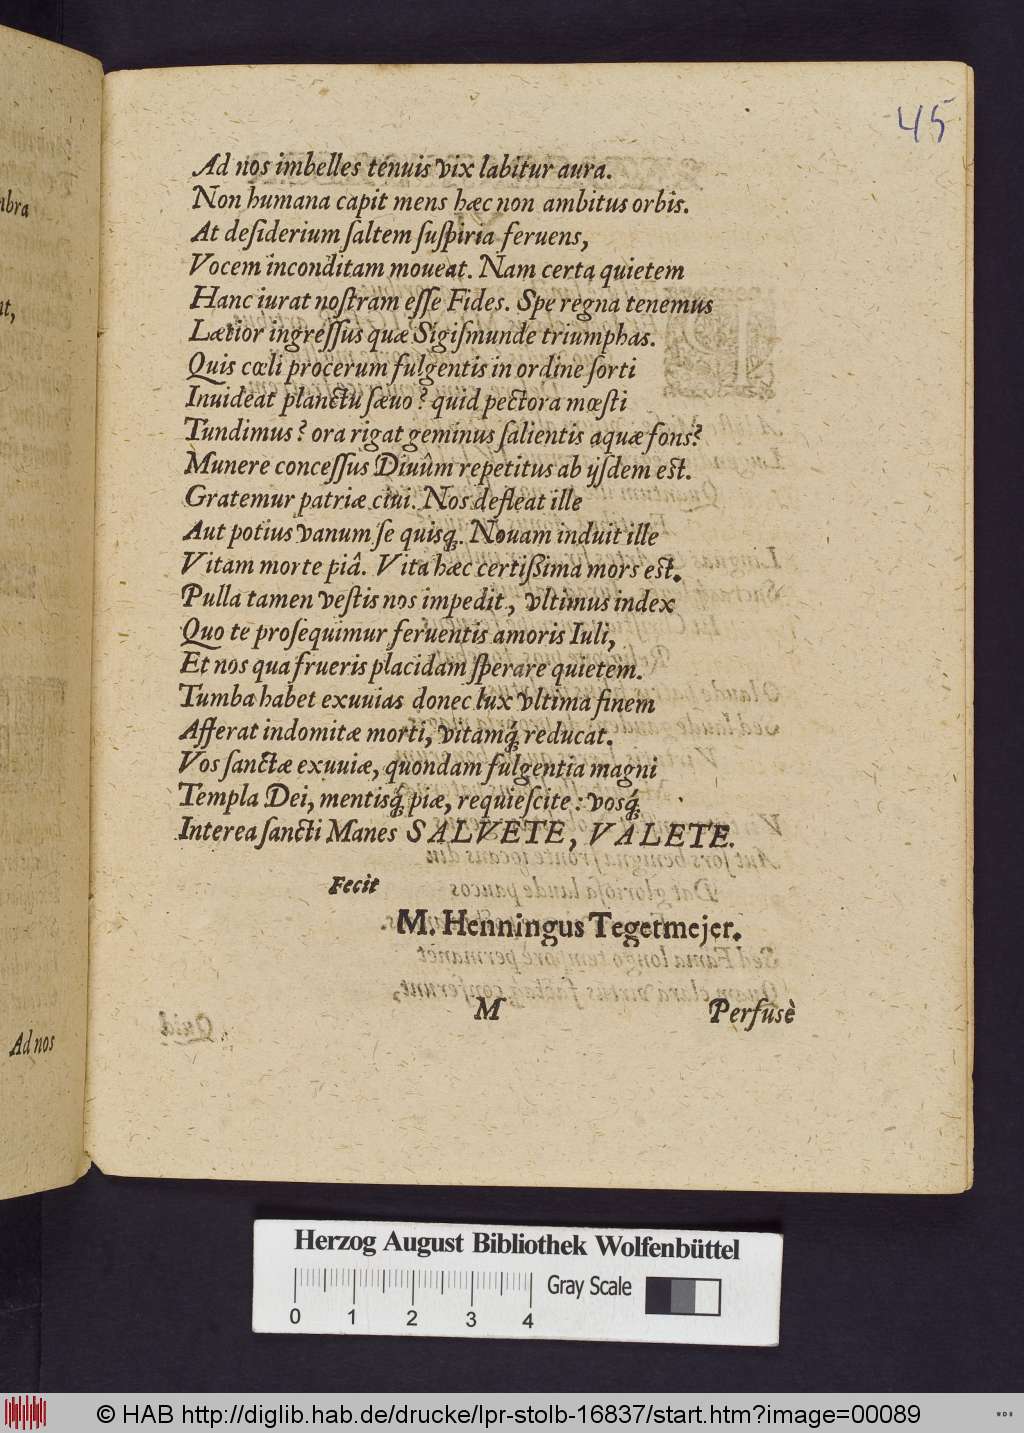 mbra
Ad nos
45
Ad nos imbelles tenuis vix labitur aura.
Non humana capit mens hæc non ambitus orbis.
At deſiderium ſaltem ſuſpiria feruens,
Vocem inconditam moueat. Nam certa quietem
Hanc iurat noſtram eſſe Fides. Spe regna tenemus
Lætior ingreſſus quæ Sigiſmunde triumphas.
Quis cœli procerum fulgentis in ordine ſorti
Inuideat planctu ſæuo? quid pectora mœſti
Tundimus? ora rigat geminus ſalientis aquæ fons?
Munere conceſſus Diuûm repetitus ab ijſdem est.
Gratemur patriæ ciui. Nos defleat ille
Aut potius vanum ſe quisq́. Nouam induit ille
Vitam morte piâ. Vita hæc certißima mors est.
Pulla tamen veſtis nos impedit, vltimus index
Quo te proſequimur feruentis amoris Iuli,
Et nos qua frueris placidam ſperare quietem.
Tumba habet exuuias donec lux vltima finem
Afferat indomitæ morti, vitamq́ reducat.
Vos ſanctæ exuuiæ, quondam fulgentia magni
Templa Dei, mentisq́ piæ, requieſcite: vosq́
Interea ſancti Manes SALVETE, VALETE.
Fecit
M. Henningus Tegetmejer.
M
Perfusè
Herzog August Bibliothek Wolfenbüttel
Gray Scale
0 1 2 3 4
© HAB http://diglib.hab.de/drucke/lpr-stolb-16837/start.htm?image=00089